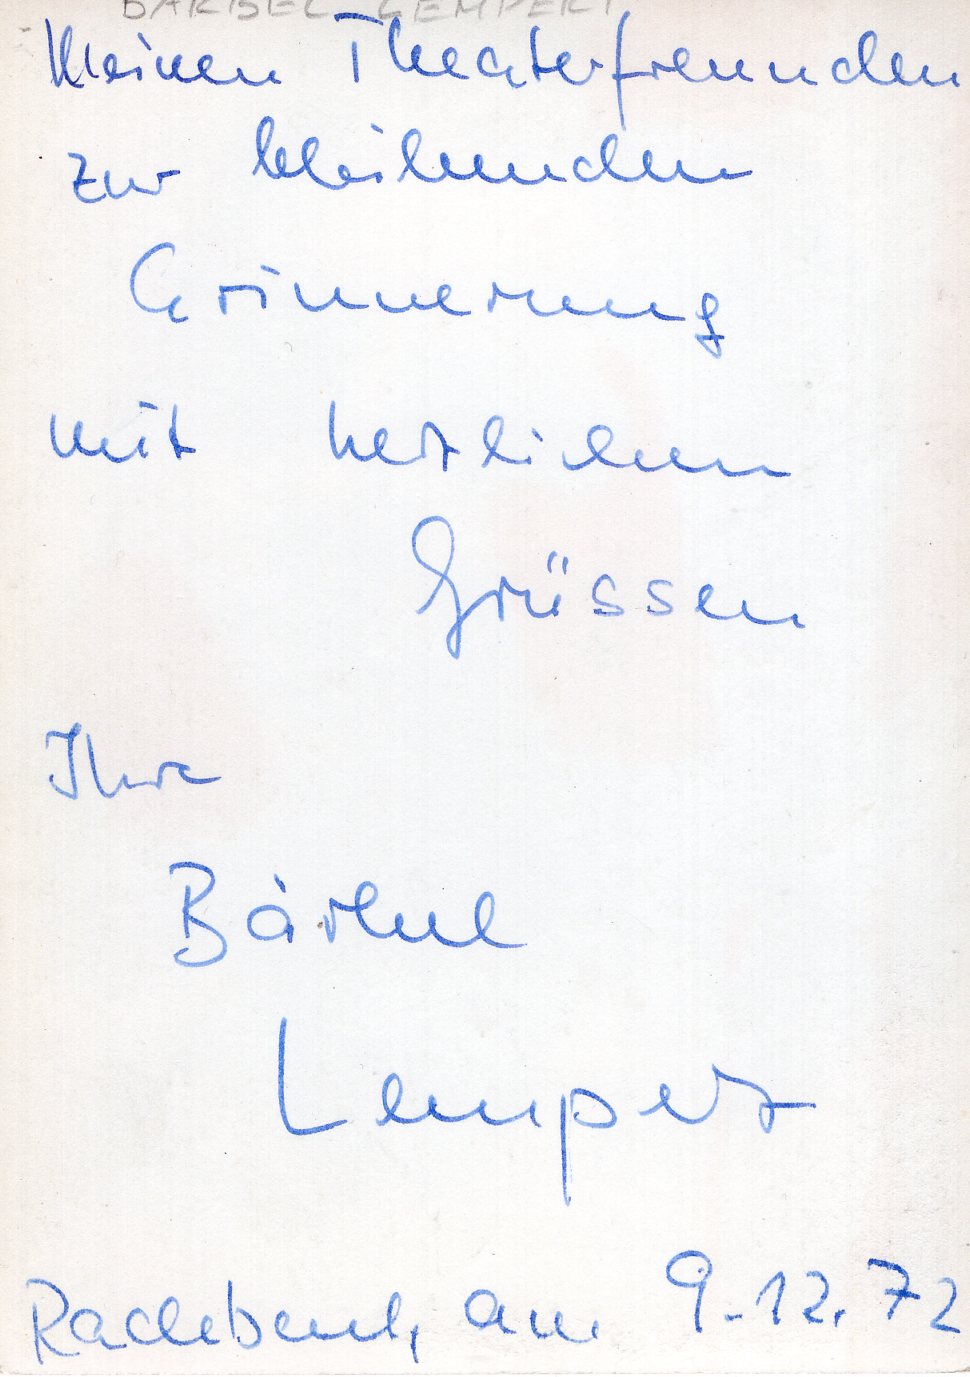 BÄRBEL LEMPERT
Meinen Theaterfreunden
zur bleibenden
Erinnerung
mit herzlichen
Grüssen
Ihre
Bärbel
Lempert
am 9.12.72